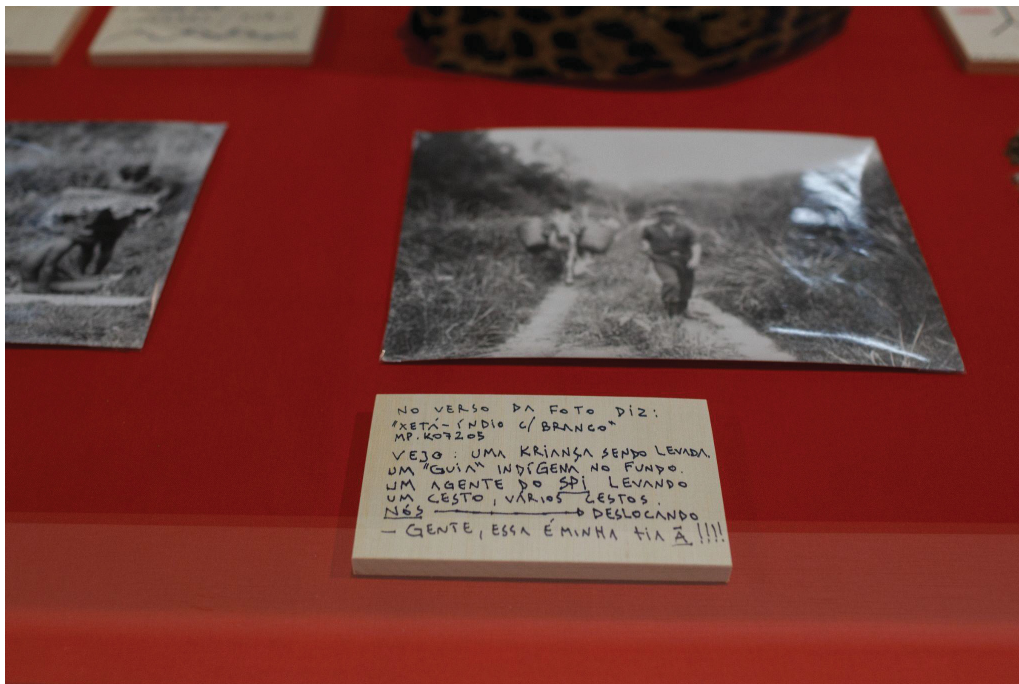 NO VERSO DA FOTO DIZ:
"XETÁ-ÍNDIO C/ BRANCO"
MP.K07205
VEJO: UMA KRIANÇA SENDO LEVADA.
UM "GUIA" INDÍGENA NO FUNDO.
UM AGENTE DO SPI LEVANDO
UM CESTO, VÁRIOS CESTOS.
NÓS → DESLOCANDO
- GENTE, ESSA É MINHA TIA Ã !!!!